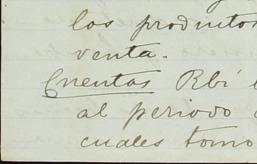 los productos
venta.
Cuentas Rbí
al periodo
cuales tomo